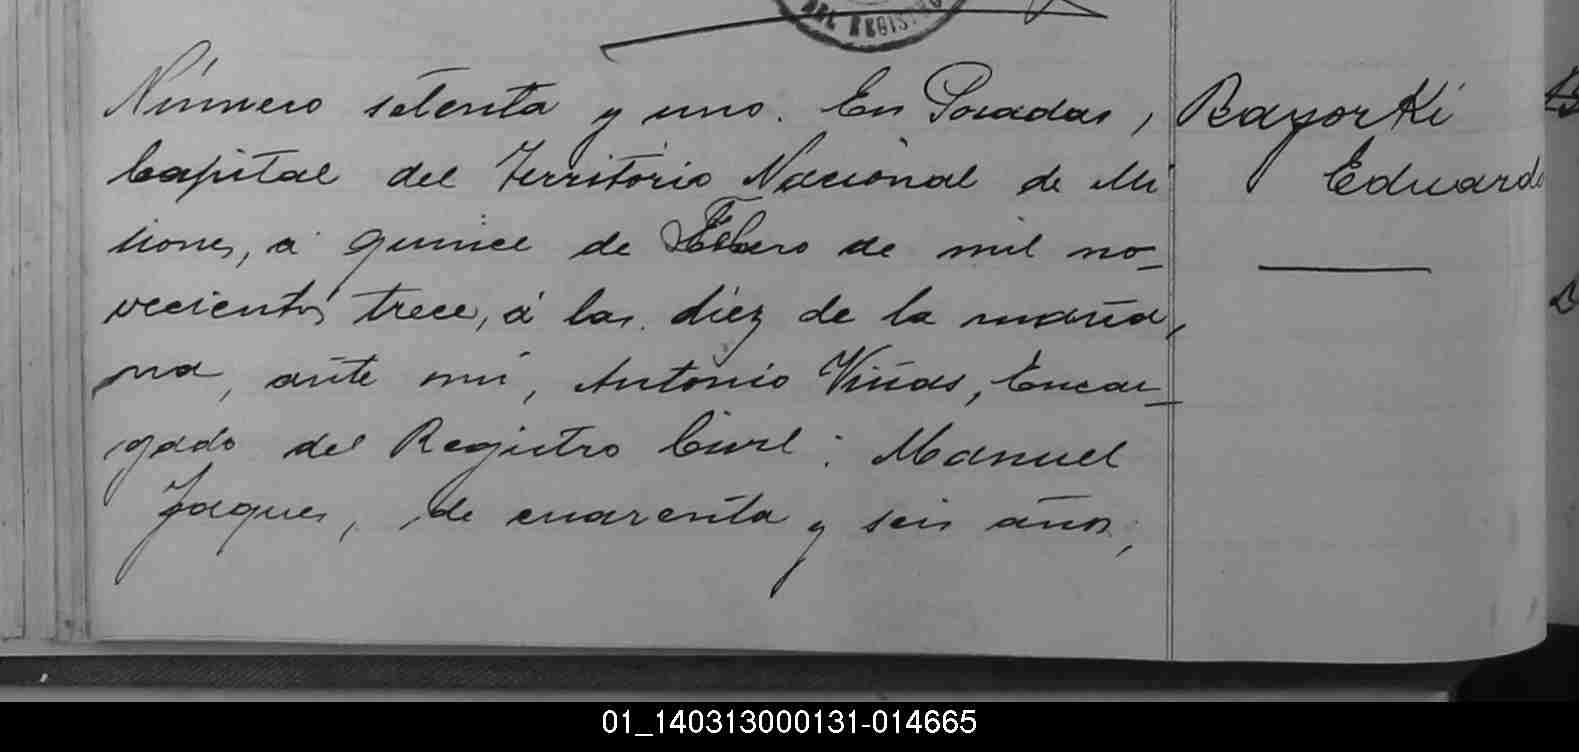 DEL REGISTRO
Número setenta y uno. En Posadas,
Capital del Territorio Nacional de Mi
siones, á quince de Febrero de mil no-
vecientos trece, á las diez de la maña,
na, ante mi, Antonio Viñas, Encar-
gado del Registro Civil: Manuel
Jaques, de cuarenta y seis años,
Bayorki
Eduardo
01_140313000131-014665